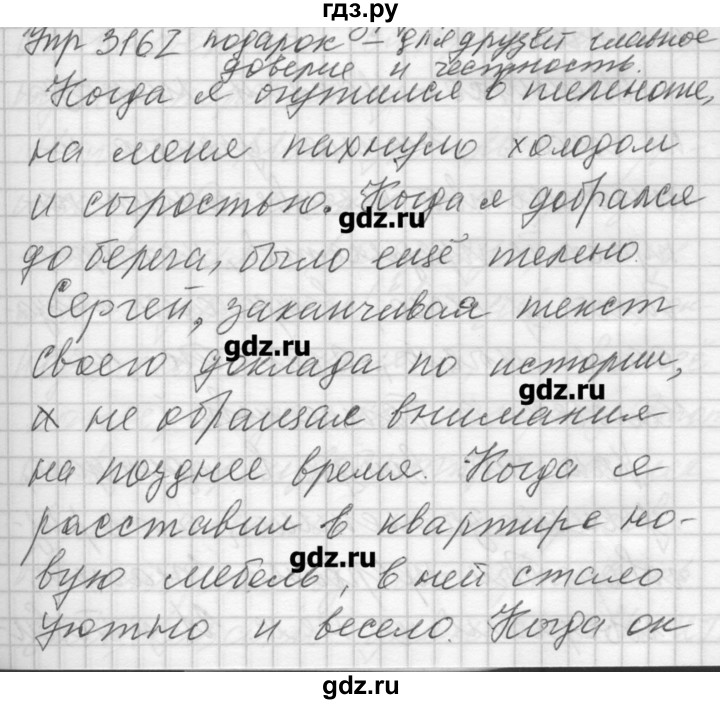 гдз.ру
Упр 316 Z подарок – для друзей главное
доверие и честность.
Когда я очутился в теленоте,
на меня пахнуло холодом
и сыростью. Когда я добрался
gdz.ru
до берега, было ещё телено.
Сергей, заканчивая текст
своего доклада по истории,
gdz.ru
gdz.ru
не обращал внимания
на позднее время. Когда я
расставил в квартире но-
gdz.ru
вую мебель, в ней стало
уютно и весело. Когда он
gdz.ru